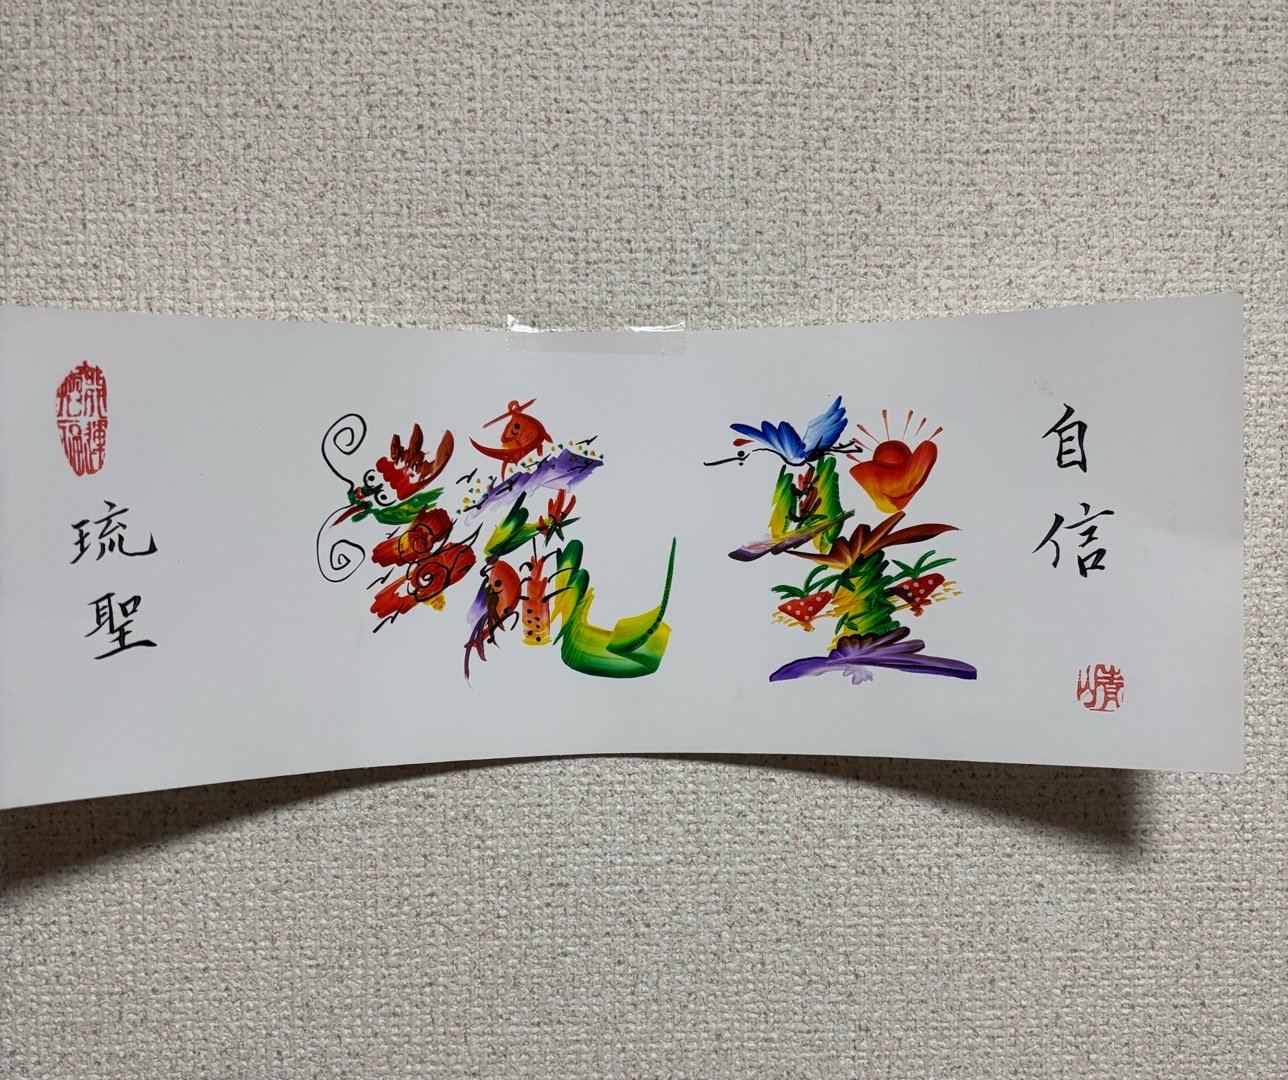 琉聖
琉聖
自信